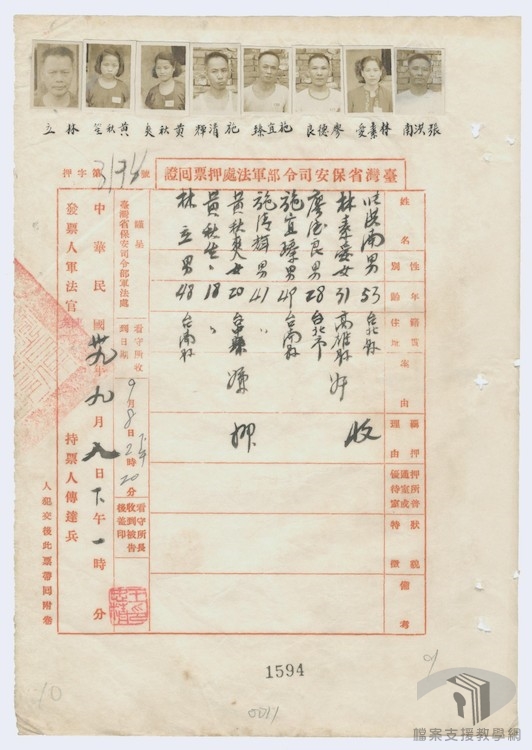 張洪南 林素愛 廖德良 施宜臻 施清輝 黄秋爽 黃秋笙 林立
臺灣省保安司令部軍法處押票回證
字第3194號押
姓名
性別
年齡
籍貫住址
案由
羈押理由
特狀
備考
男 53 台北縣
林素愛 女 31 高雄縣
廖德良 男 28 台北市
施宜臻 男 49 台南縣
施清輝 男 41 〃
黃秋爽 女 20 台南縣
黃秋生 〃 18 〃
林立 男 48 台南縣
收押
臺灣省保安司令部軍法處
看守所收到日期
9月8日下午2時20分
看守所長收到被告後蓋印
中華民國卅九年九月八日下午一時 分
發票人軍法官
持票人傳達兵
人犯交後此票帶回附卷
1594
0011
10
檔案支援教學網